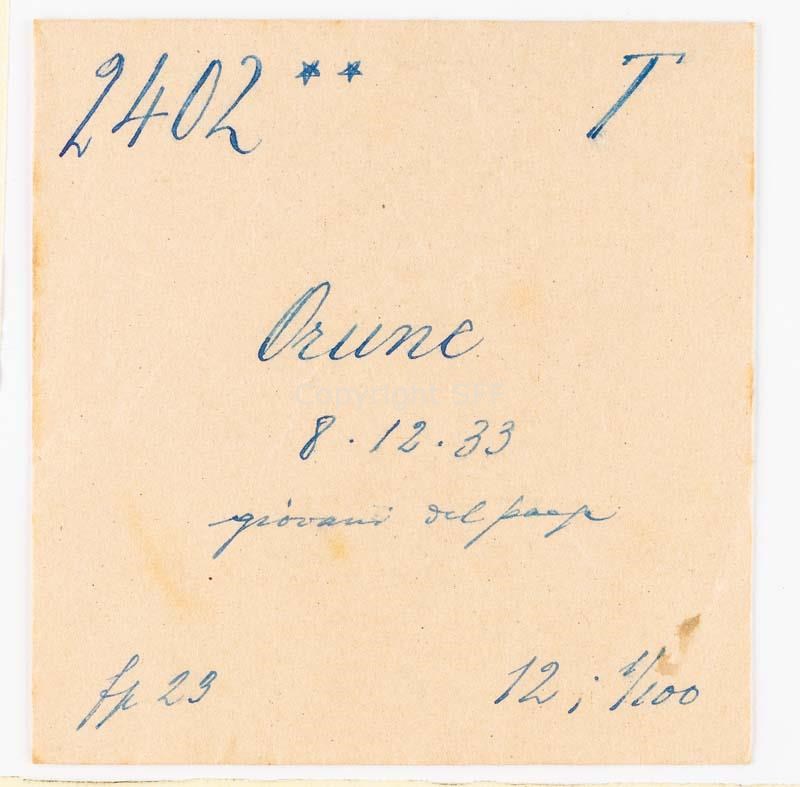 2402 ** T
Orune
8.12.33
giovani del paese
fp 23 12; 1/100